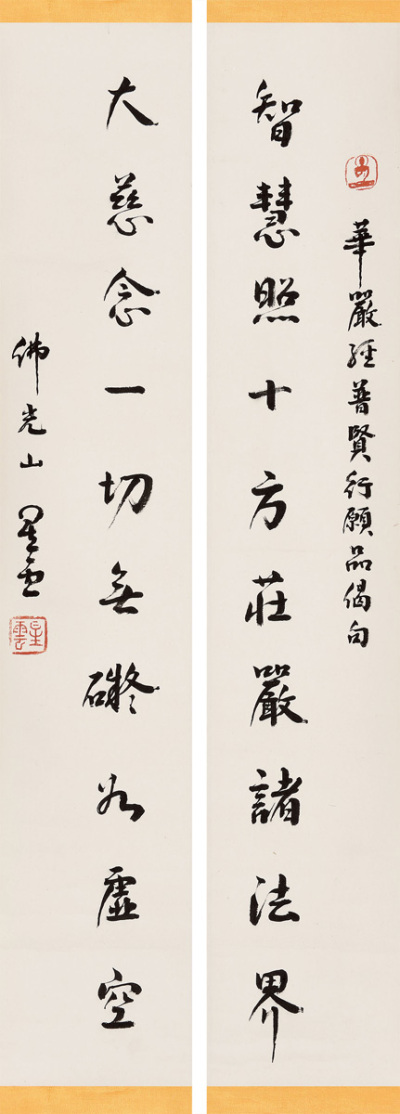 華嚴經普賢行願品偈句
智慧照十方莊嚴諸法界
大慈念一切無礙如虛空
佛光山 星雲
星雲